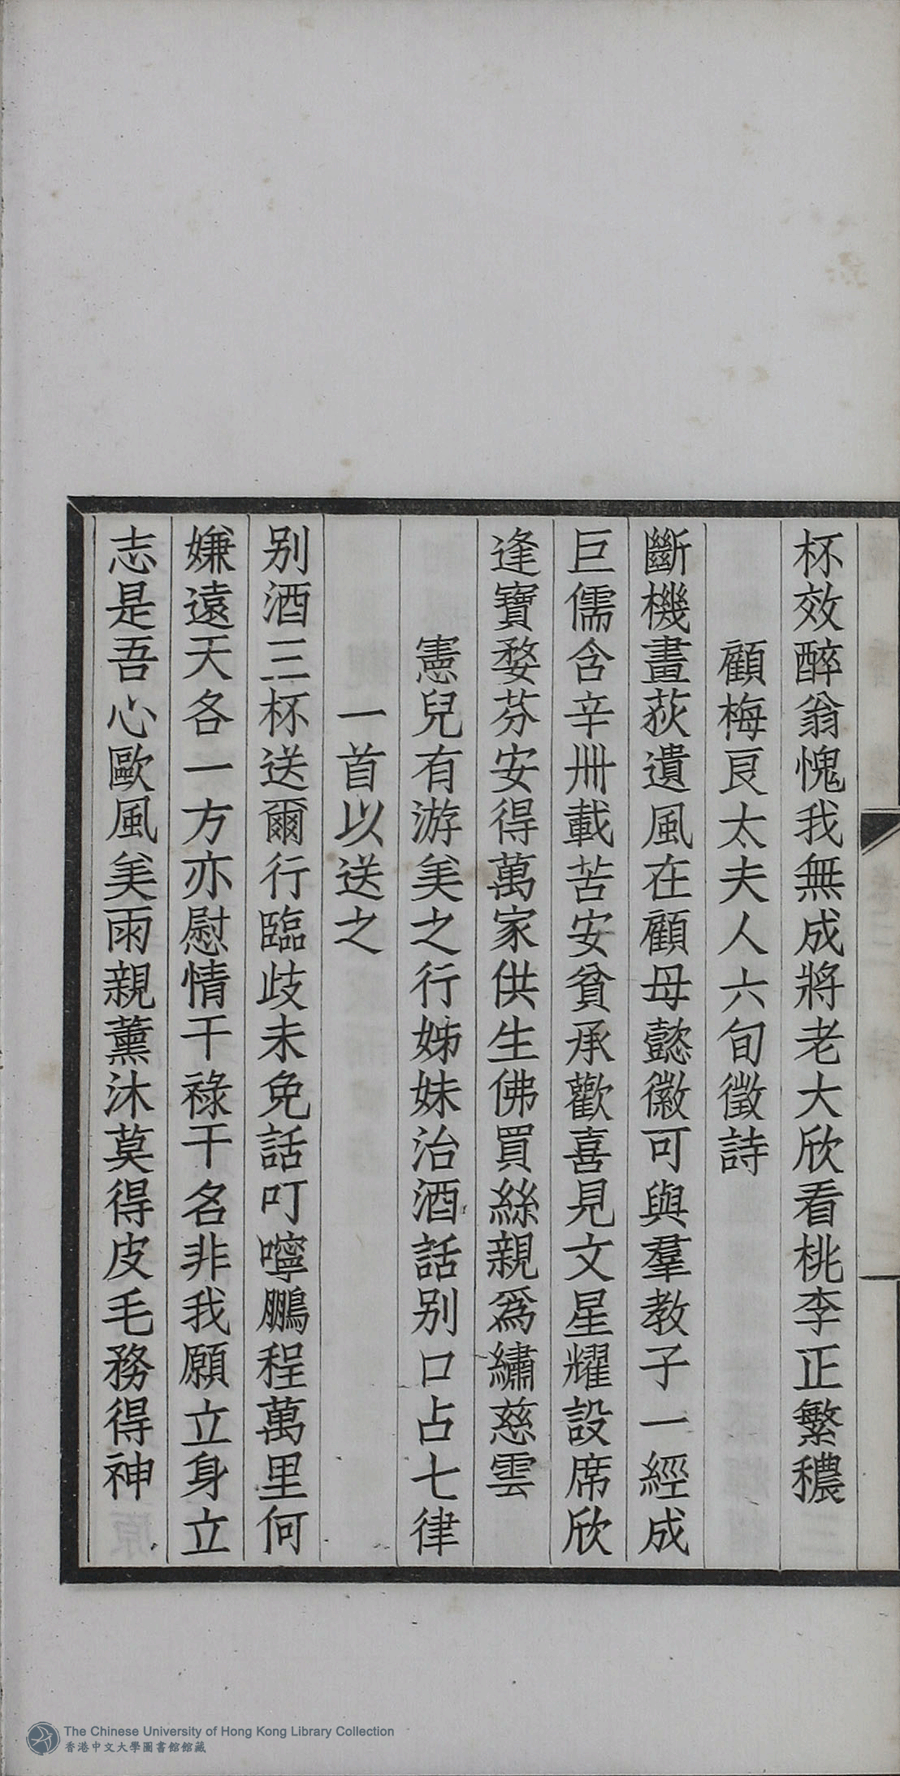 杯效醉翁愧我無成將老大欣看桃李正繁穠
顧梅艮太夫人六旬徵詩
斷機畫荻遺風在顧母懿徽可與羣教子一經成
巨儒含辛卅載苦安貧承歡喜見文星耀設席欣
逢寶婺芬安得萬家供生佛買絲親爲繡慈雲
憲兒有游美之行姊妹治酒話别口占七律
一首以送之
别酒三杯送爾行臨歧未免話叮嚀鵬程萬里何
嫌遠天各一方亦慰情干祿干名非我願立身立
志是吾心歐風美雨親薰沐莫得皮毛務得神
The Chinese University of Hong Kong Library Collection
香港中文大學圖書館館藏